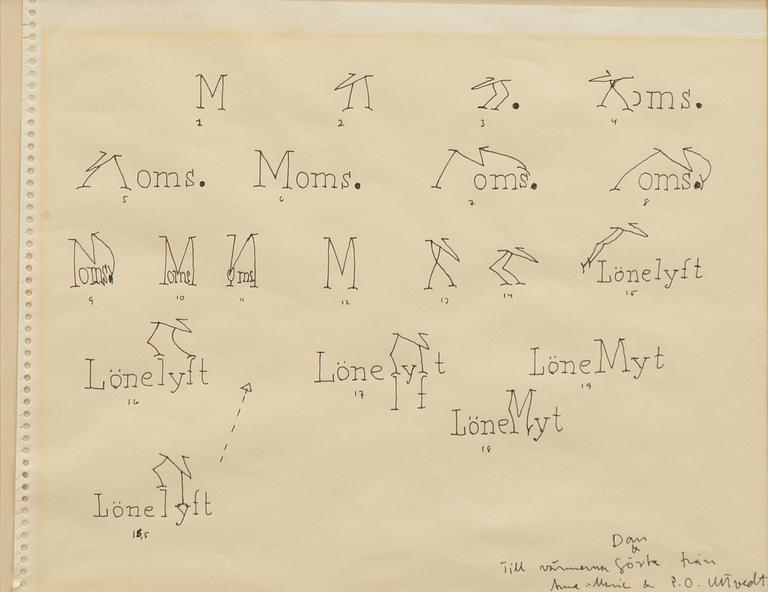 M
1
2
3
oms.
4
oms.
5
Moms.
6
oms.
7
oms.
8
Moms.
9
Moms
10
oms
11
M
12
13
14
Lönelyft
15
Lönelyft
16
Lönelyft
17
LöneMyt
18
LöneMyt
19
Lönelyft
16,5
Dan
&
Till vännerna Gösta från
Anna-Maria & P.O. Ultvedt